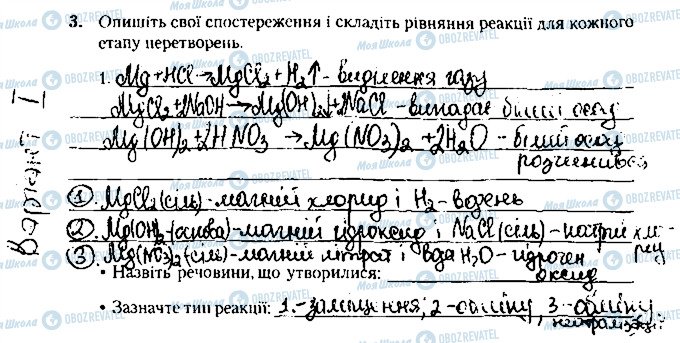 3. Опишіть свої спостереження і складіть рівняння реакції для кожного
етапу перетворень.
1. Mg+HCl→MgCl₂+H₂↑ - виділення газу
MgCl₂+2NaOH→Mg(OH)₂↓+2NaCl - випадає білий осад
Mg(OH)₂+2HNO₃→Mg(NO₃)₂+2H₂O - білий осад
розчинився
Варіант I
① MgCl₂(сіль)-магній хлорид і H₂-водень
② Mg(OH)₂-(основа)-магній гідроксид і NaCl(сіль)-натрій хло-
рид
③ Mg(NO₃)₂(сіль)-магній нітрат і вода H₂O-гідроген
оксид
• Назвіть речовини, що утворилися:
• Зазначте тип реакції: 1.-заміщення; 2-обміну, 3-обміну
нейтралізації
Моя Школа OBOZREVATEL